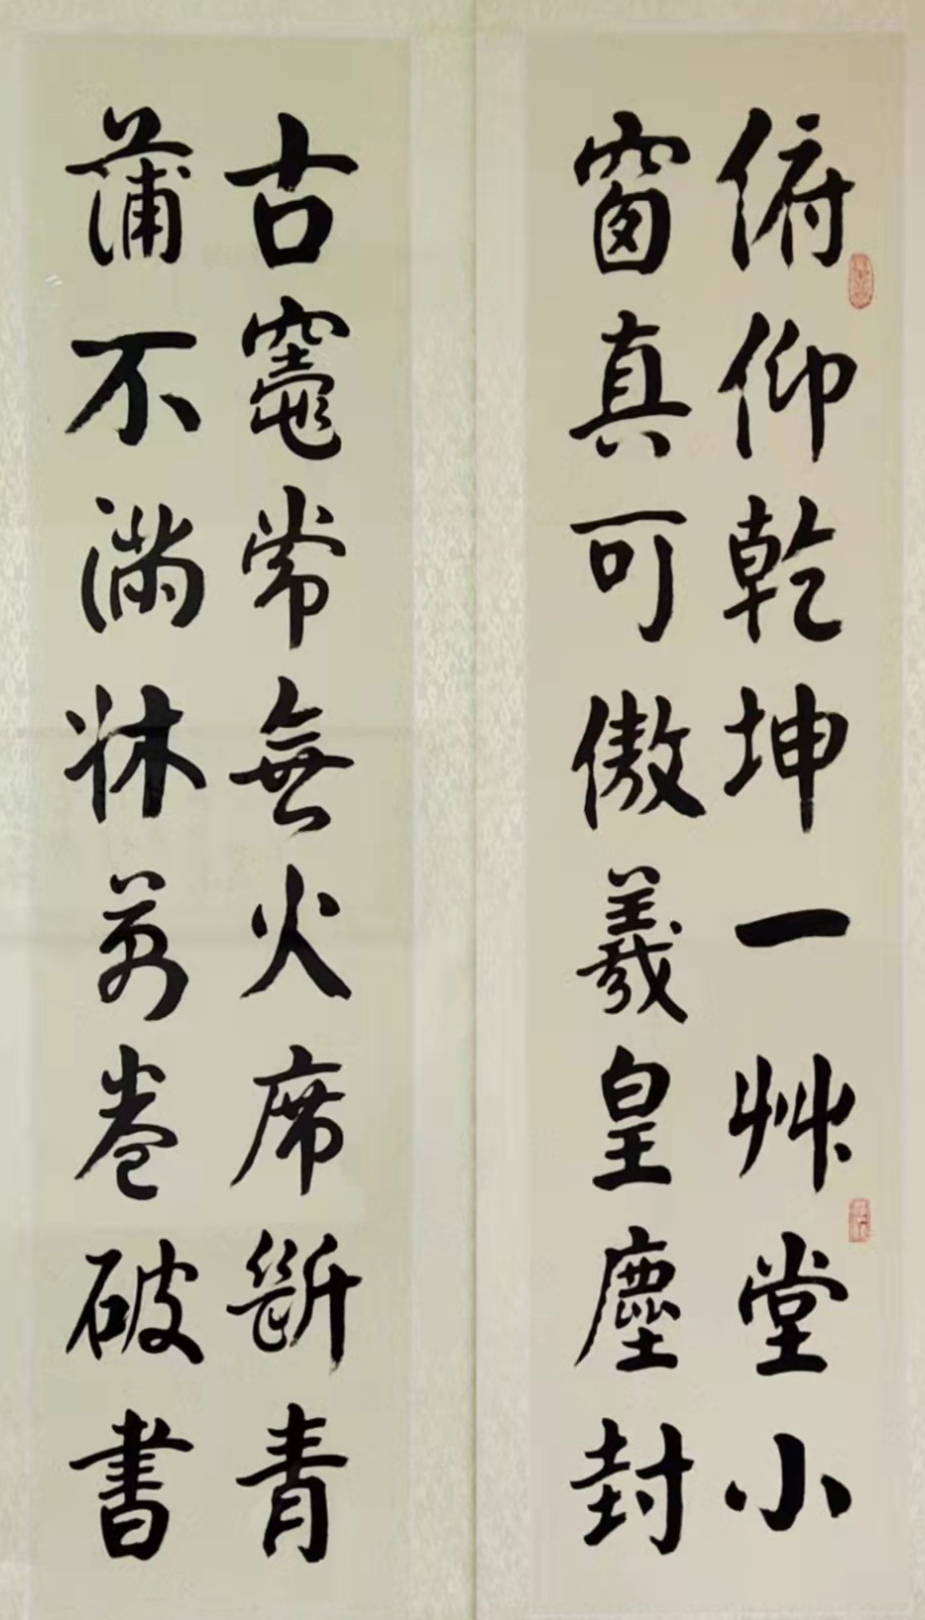 俯仰乾坤一艸堂小
窗真可傲羲皇塵封
古竈常無火席斷青
蒲不滿牀萬卷破書